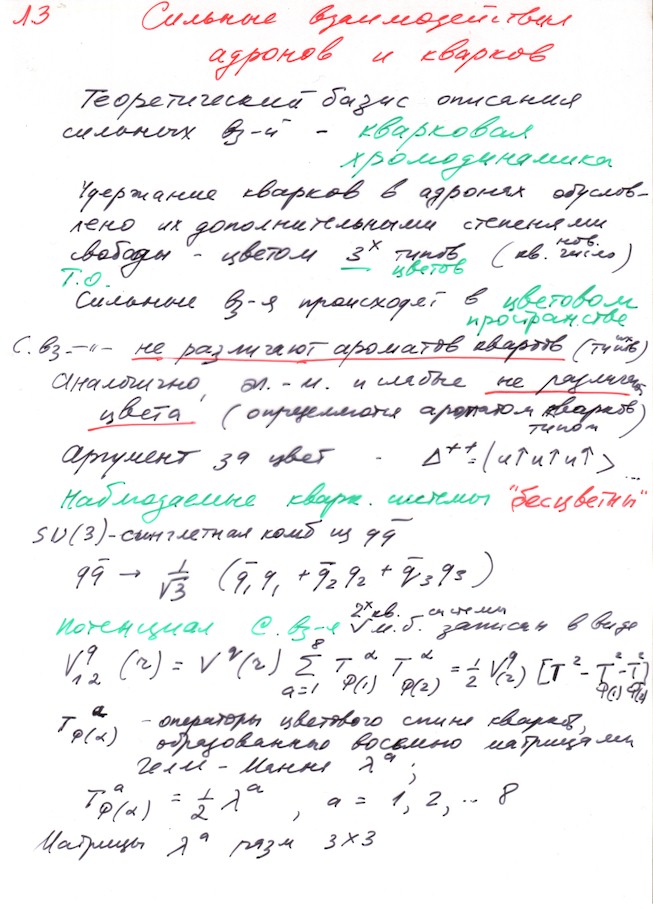 Л3 Сильные взаимодействия
адронов и кварков
Теоретический базис описания
сильных вз-й - кварковая
хромодинамика
Удержание кварков в адронах обуслов-
лено их дополнительными степенями
свободы - цветом 3х типов (кв. число)
нов.
Т.О. цветов
Сильные вз-я происходят в цветовом
пространстве
С. вз-"- не различают ароматов кварков (типов)
Аналогично, эл.-м. и слабые не различают
цвета (определяются ароматом кварков)
типом
Аргумент за цвет - Δ++ = (u↑u↑u↑> ...
Наблюдаемые кварк. системы "бесцветны"
SU(3)-синглетная комб из qq̄
qq̄ → 1/√3 (q̄₁q₁ + q̄₂q₂ + q̄₃q₃)
2х кв. системы
Потенциал С. вз-я √ м.б. записан в виде
V₁₂^q (r) = V^q(r) Σ_{a=1}^{8} T^α_{Ф(1)} T^α_{Ф(2)} = ½ V^q(r) [T² - T²_{Ф(1)} - T²_{Ф(2)}]
T^a_{Ф(α)} - операторы цветового спина кварков,
образованные восемью матрицами
Гелл-Манна λ^a ;
T^a_{Ф(α)} = ½ λ^a , a = 1, 2, .. 8
Матрицы λ^a разм 3×3